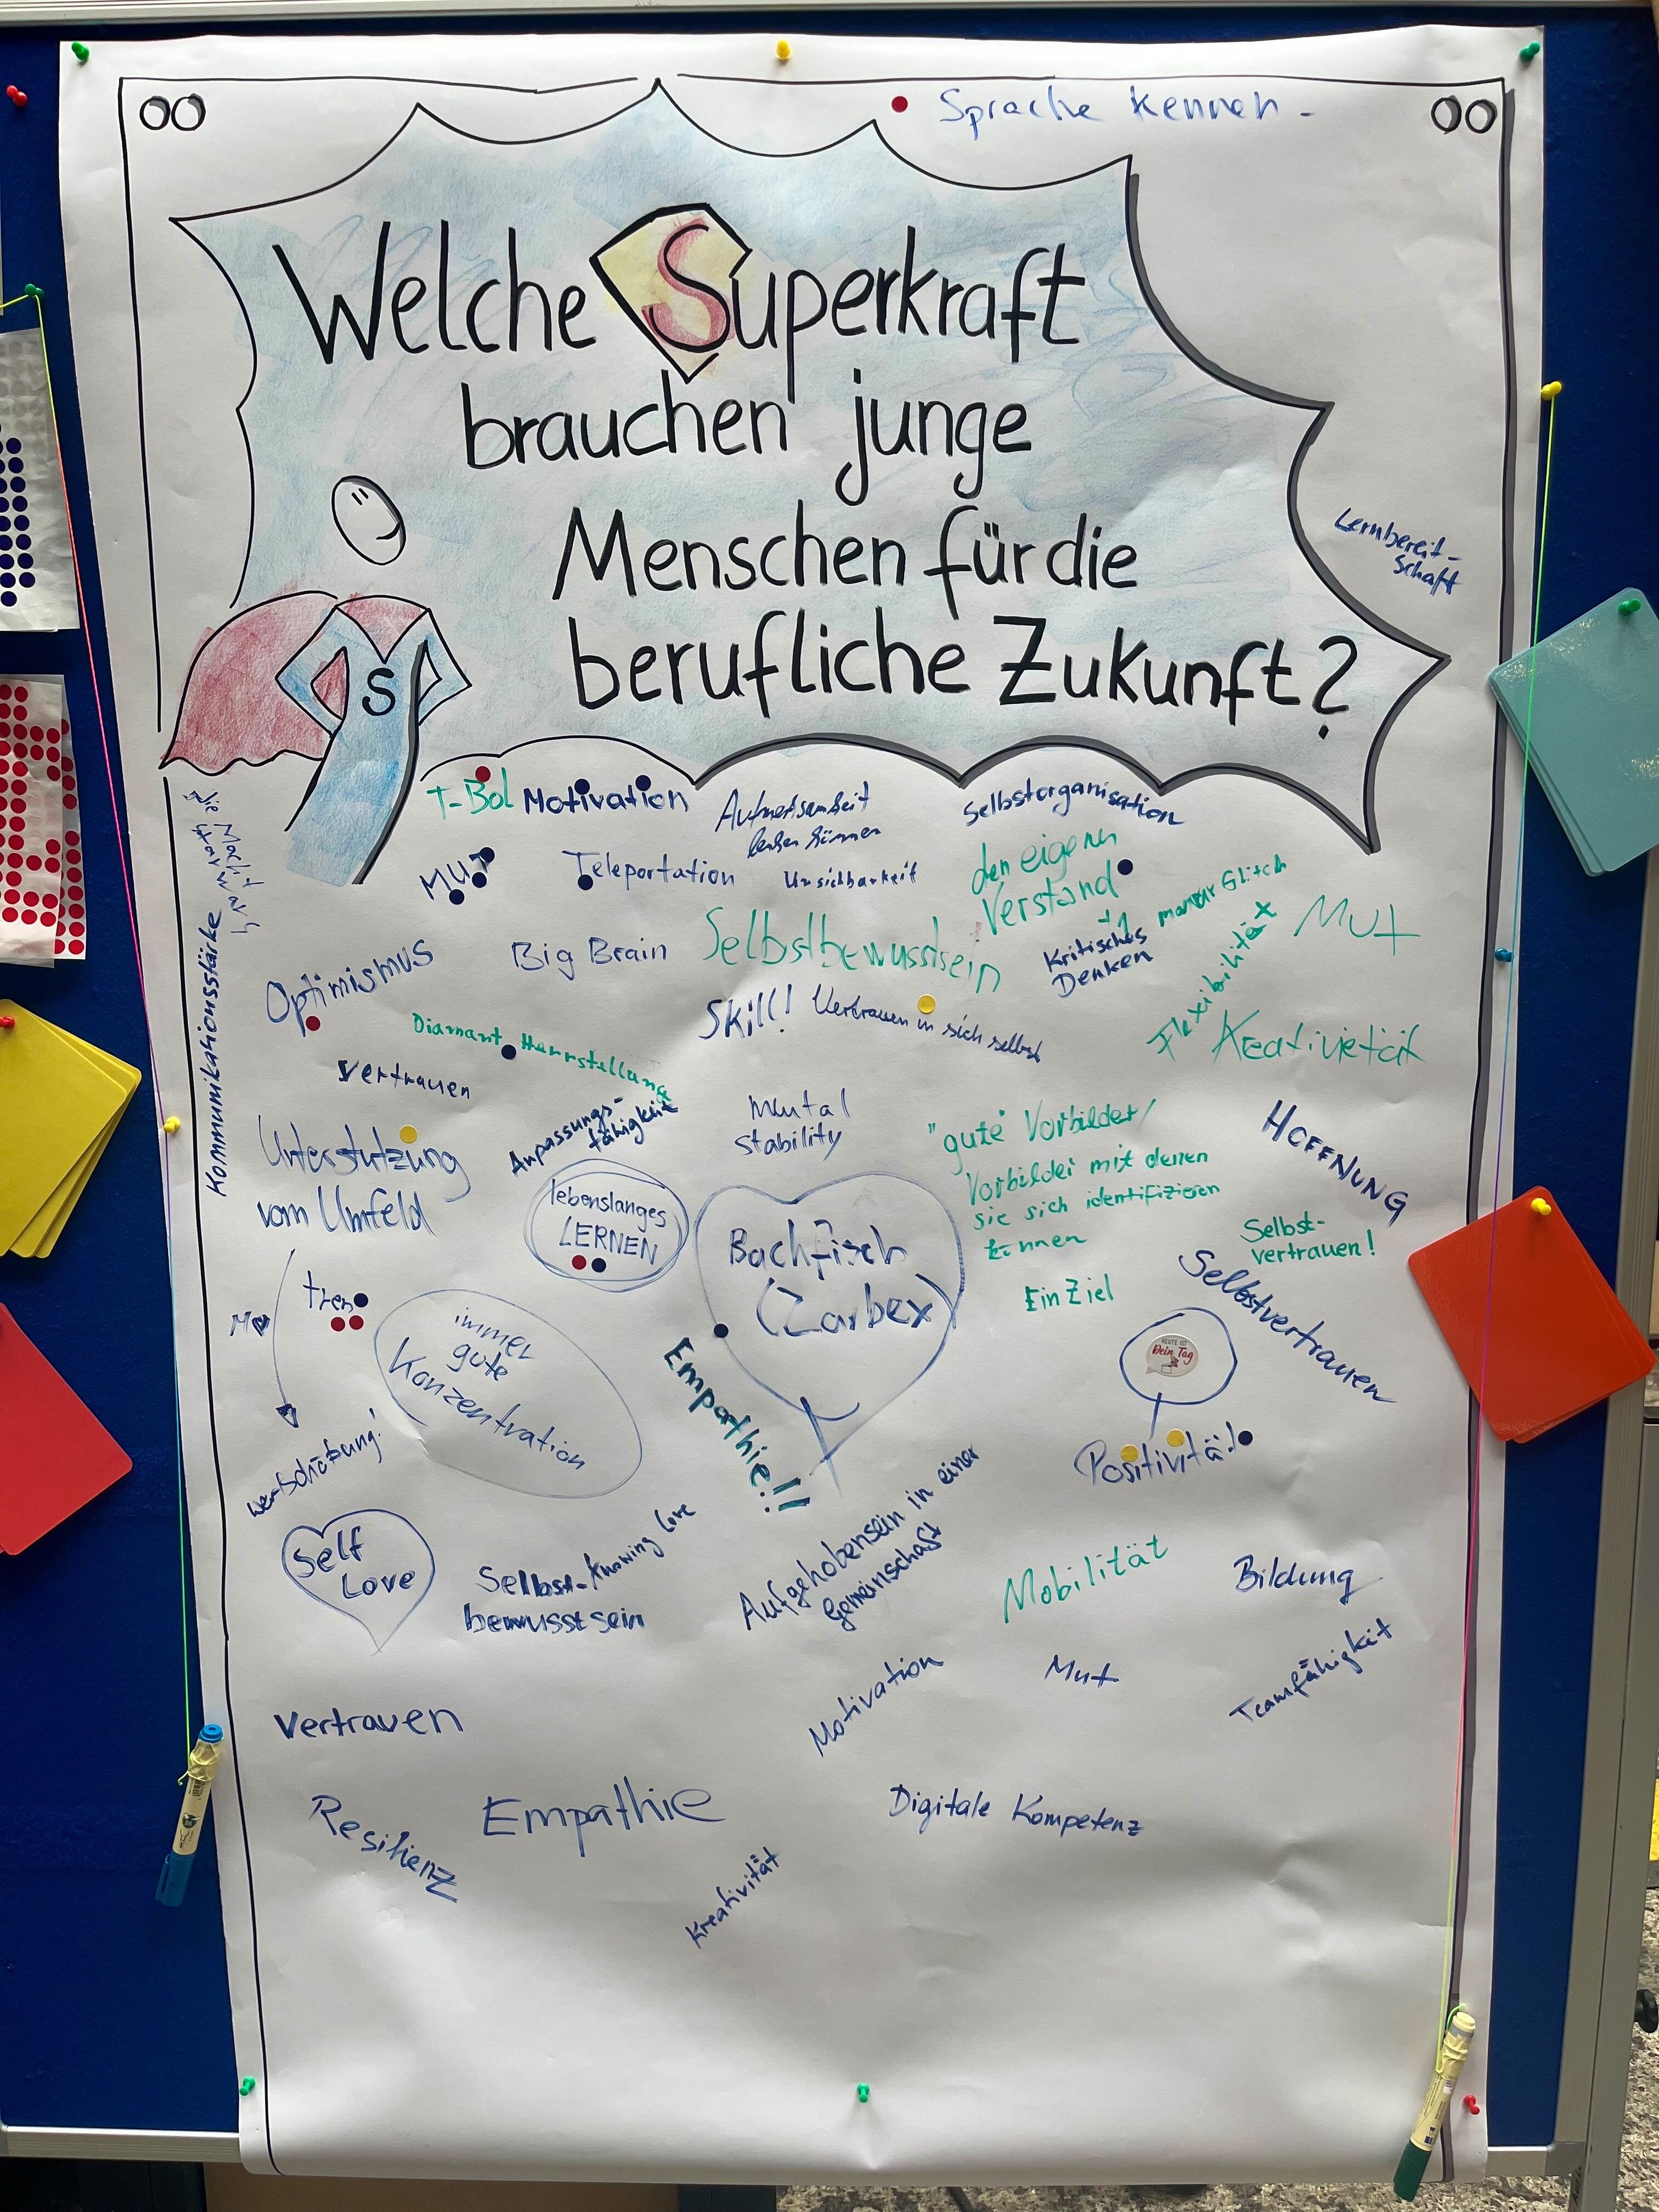 Sprache kennen -
Welche Superkraft
brauchen junge
Menschen für die
berufliche Zukunft?
S
Lernbereit-
schaft
T-Bol
Motivation
Aufmerksamkeit
lenken können
Selbstorganisation
MUT
Teleportation
Unsichbarkeit
den eigenen
Verstand
+1
Kritisches
Denken
Glitch
Flexibilität
Mut
Die Macht
Kommunikationsstärke
Optimismus
Big Brain
Selbstbewusstsein
Skill!
Vertrauen in sich selbst
Kreativietät
Diamant Herrstellung
Vertrauen
Anpassungs-
fähigkeit
Mental
stability
"gute" Vorbilder/
Vorbilder mit denen
sie sich identifizieren
können
HOFFNUNG
Unterstützung
vom Umfeld
lebenslanges
LERNEN
Bachfisch
(Zarbex)
Selbst-
vertrauen!
Selbstvertrauen
Ein Ziel
immer
gute
Konzentration
Empathie!!
HEUTE IST
Dein Tag
Positivität
Wertschätzung!
Self
Love
Selbst-
bewusstsein
Knowing Love
Aufgehobensein in einer
Gemeinschaft
Mobilität
Bildung
Motivation
Mut
Teamfähigkeit
Vertrauen
Resilienz
Empathie
Digitale Kompetenz
Kreativität